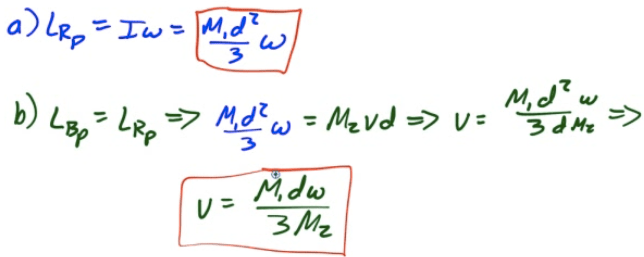 a) L_{R_P} = Iω = \frac{M_1 d^2}{3} ω
b) L_{B_P} = L_{R_P} => \frac{M_1 d^2}{3} ω = M_2 v d => v = \frac{M_1 d^2 ω}{3 d M_2} =>
v = \frac{M_1 d ω}{3 M_2}